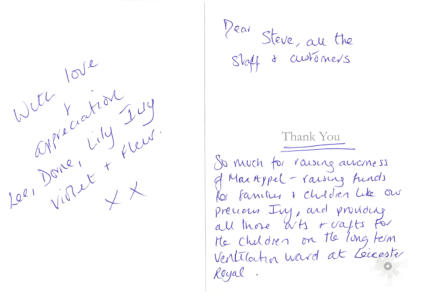 With love
+
appreciation
Lee, Dome, Lily Ivy
Violet + Fleur.
X X
Dear
Steve, all the
Staff & customers
Thank You
So much for raising awarness
of Max Appel – raising funds
for families & children like our
precious Ivy, and providing
all those arts + crafts for
the children on the long term
ventilation ward at Leicester
Royal.